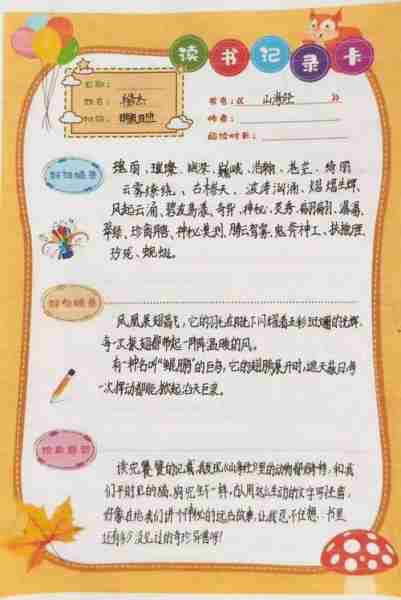 读书记录卡
班级：
姓名：
时间：
书名：《山海经》
作者：
阅读时长：
好词摘录
瑰丽、璀璨、巍峨、浩瀚、苍茫、绮丽
云雾缭绕、古木参天、波涛汹涌、熠熠生辉、
风起云涌、碧波荡漾、奇异、神秘、灵秀、翩翩、瀑瀑、
翠绿、珍禽异兽、神秘莫测、腾云驾雾、鬼斧神工、扶摇
珍珑、蜿蜒。
好句摘录
凤凰展翅高飞，它的羽毛在阳光下闪耀着五彩斑斓的光辉，
每一次展翅都带起一阵阵温暖的风。
有一种名叫“鲲鹏”的巨鸟，它的翅膀展开时，遮天蔽日，每
一次挥动都能掀起滔天巨浪。
读完饕餮的记载，我发现《山海经》里的动物都很奇特，和我
们平时见的猫、狗完全不一样，古人用这么生动的文字写出来，
好像在给我们讲一个神秘的远古故事，让我忍不住想，书里
还有多少没见过的奇珍异兽呀！